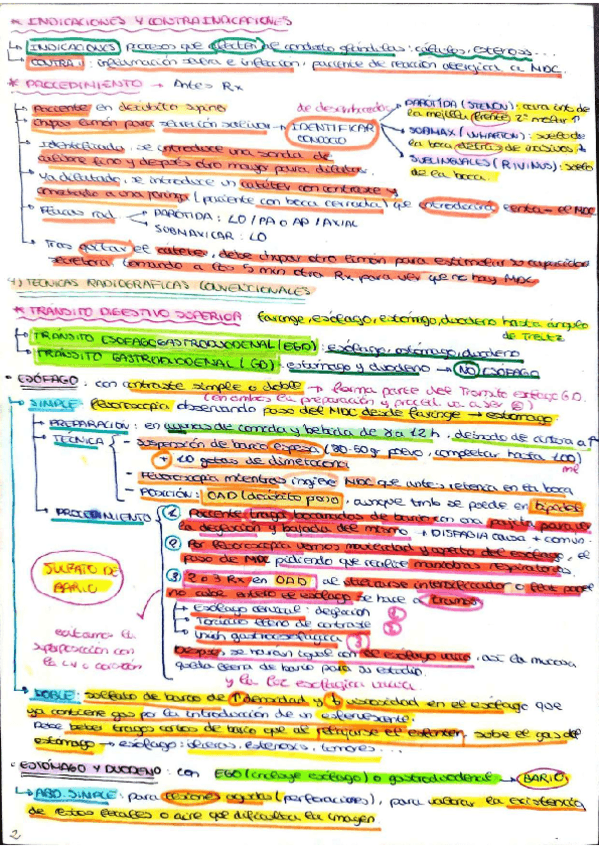 * INDICACIONES Y CONTRAINDICACIONES
INDICACIONES procesos que afecten al conducto glándulas: cálculos, estenosis...
CONTRA: inflamación severa e infección, paciente de reacción alérgica al MDC.
* PROCEDIMIENTO → Antes Rx
Paciente en decúbito supino
chupar limón para secreción salivar → IDENTIFICAR CONDUCTO
de desembocadura
PARÓTIDA (STENON): cara int. de la mejilla frente 2º molar ↑
SUBMAX (WHARTON): suelo de la boca detrás de incisivos ↑
SUBLINGUALES (RIVINUS): suelo de la boca.
Identificado, se introduce una sonda de calibre fino y después otro mayor para dilatar.
Ya dilatado, se introduce un catéter con contraste y conectado a una jeringa (paciente con boca cerrada) que introducirá lenta- el MDC
Películas rad
PARÓTIDA: LO / PA o AP / AXIAL
SUBMAXILAR: LO
Tras quitar el catéter, debe chupar otro limón para estimular su capacidad
secretora, tomando a los 5 min otra Rx para ver que no hay MDC.
4) TÉCNICAS RADIOGRÁFICAS CONVENCIONALES
* TRÁNSITO DIGESTIVO SUPERIOR faringe, esófago, estómago, duodeno hasta ángulo
de Treitz
TRÁNSITO ESOFAGOGASTRODUODENAL (EGD): esófago, estómago, duodeno
TRÁNSITO GASTRODUODENAL (GD): estómago y duodeno → NO ESÓFAGO
· ESÓFAGO: con contraste simple o doble → forma parte del Tránsito esófago G.D.
(en ambos la preparación y proced. va a ser
SIMPLE: fluoroscopia observando paso del MDC desde faringe → estómago.
PREPARACIÓN: en ayunas de comida y bebida de 8 a 12 h, desnudo de cintura a ↑
TÉCNICA
- suspensión de bario espesa (30-50 g polvo, completar hasta 100) ml
+ 20 gotas de dimeticona
- Fluoroscopia mientras ingiere MDC que antes retenía en la boca
- POSICIÓN: OAD (decúbito prono), aunque tmb se puede en bipedest
PROCEDIMIENTO
1 Paciente traga bocanadas de bario con una pajita para ver
la deglución y bajada del mismo → DISFAGIA causa + común.
2 Por fluoroscopia vemos motilidad y aspecto del esófago, el
paso de MDC pidiendo que realice maniobras respiratorias.
3 2 o 3 Rx en OAD, al
no cabe entero el esófago se hace a tramos
→ Esófago cervical: deglución 1
→ Torácico lleno de contraste 2
→ Unión gastroesofágica 3
Después, se harían igual con el esófago vacío, así la mucosa
queda llena de bario para su estudio.
y la luz esofágica vacía
SULFATO DE BARIO
evitamos la
superposición con
la CV o corazón
DOBLE: sulfato de bario de ↑ densidad y ↓ viscosidad en el esófago que
ya contiene gas por la introducción de un efervescente.
Debe beber tragos cortos de bario que al relajarse el esfínter, sube el gas del
estómago → esófago: úlceras, estenosis, tumores...
· ESTÓMAGO Y DUODENO: con EGD (incluye esófago) o gastroduodenal → BARIO
ABD. SIMPLE: para lesiones agudas (perforaciones), para valorar la existencia
de restos fecales o aire que dificulta la imagen.
2